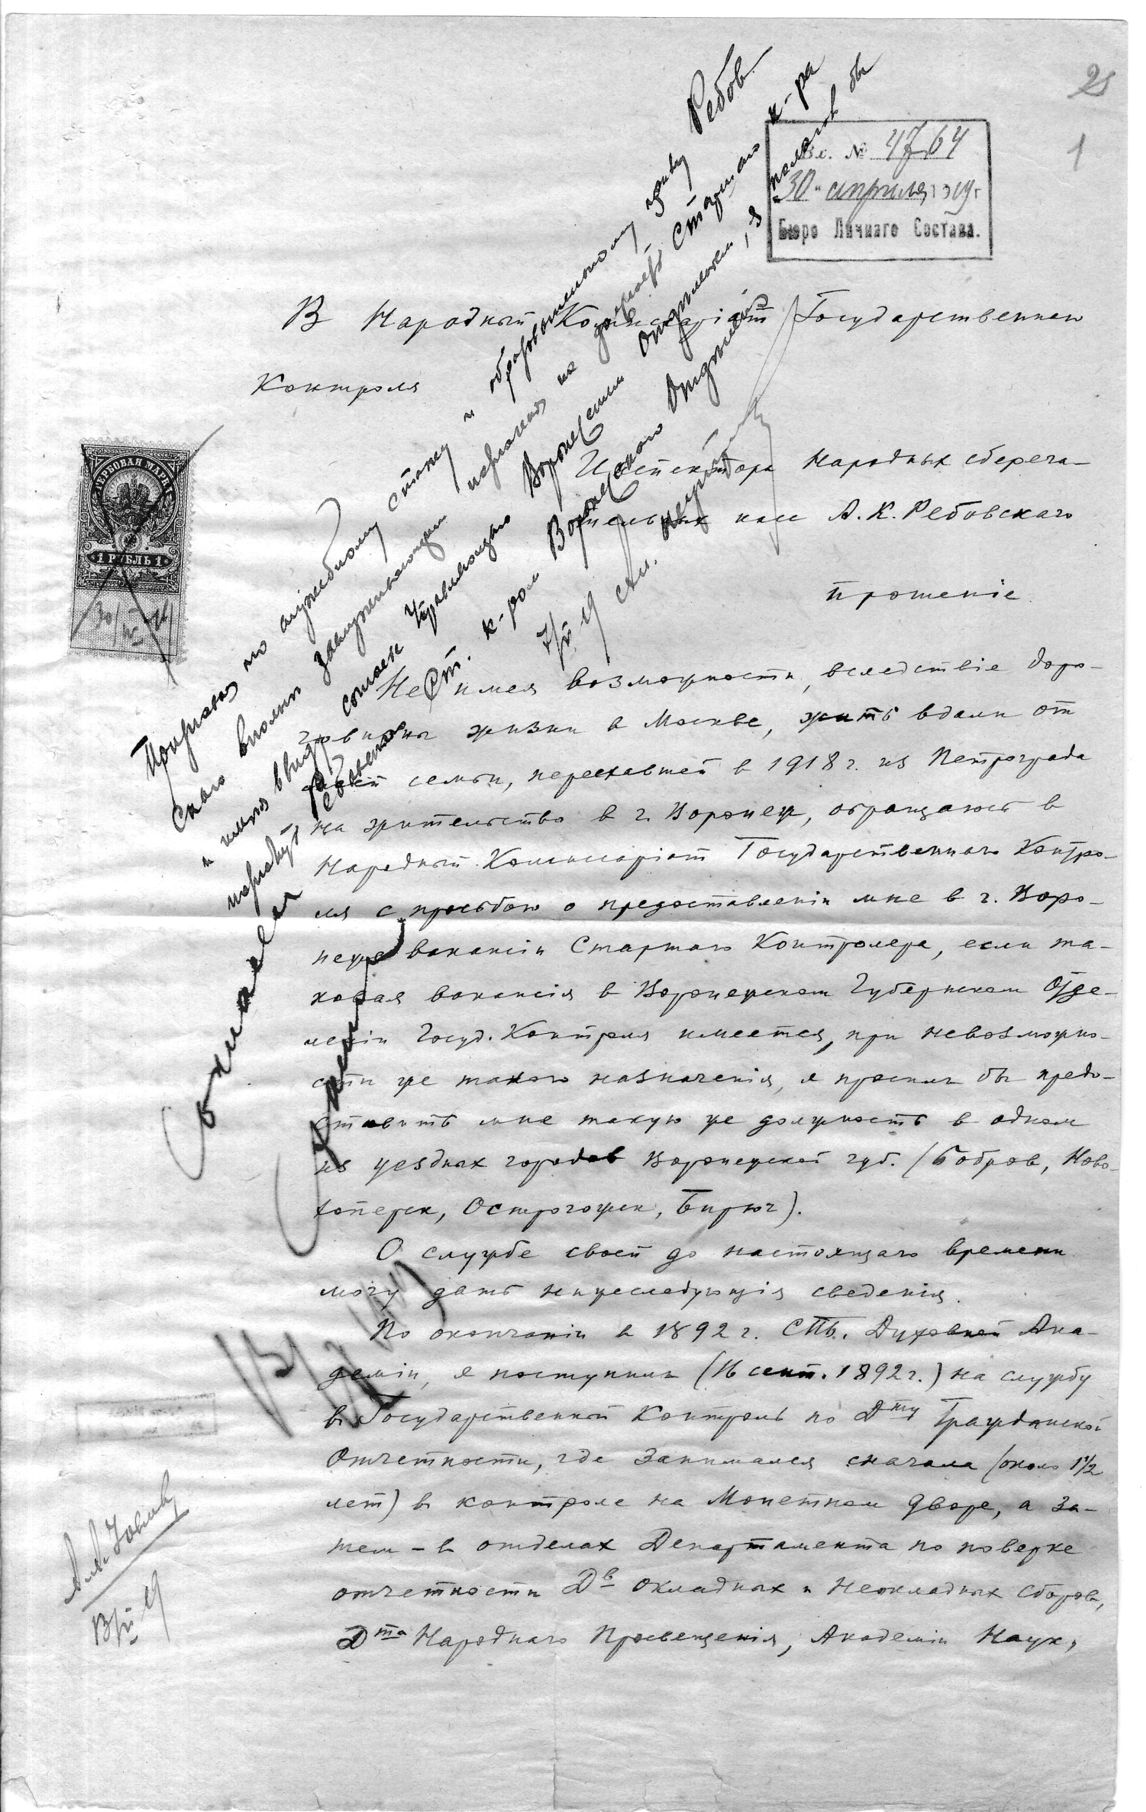 25
1
Вх. № 4764
"30" апреля 1919 г.
Бюро Личнаго Состава.
В Народный Коммиссаріат Государственнаго
Контроля
Инспектора Народных сберега-
тельных касс А.К. Ребовскаго
прошеніе.
ГЕРБОВАЯ МАРКА
1 РУБЛЬ 1
30/IV 19
Не имея возможности, вследствіе доро-
говизны жизни в Москве, жить вдали от
своей семьи, переехавшей в 1918 г. из Петрограда
на жительство в г. Воронеж, обращаюсь в
Народный Коммиссаріат Государственнаго Контро-
ля с просьбою о предоставленіи мне в г. Воро-
неже вакансіи Старшаго Контролера, если та-
ковая вакансія в Воронежском Губернском Отде-
леніи Госуд. Контроля имеется, при невозможно-
сти же такого назначенія, я просил бы предо-
ставить мне такую же должность в одном
из уездных городов Воронежской губ. (Бобров, Ново-
хоперск, Острогожск, Бирюч).
О службе своей до настоящаго времени
могу дать нижеследующія сведенія.
По окончаніи в 1892 г. СПб. Духовной Ака-
деміи, я поступил (16 сент. 1892 г.) на службу
в Государственный Контроль по Дту Гражданской
Отчетности, где занимался сначала (около 1 1/2
лет) в контроле на Монетном дворе, а за-
тем - в отделах Департамента по поверке
отчетности Дв окладных и неокладных сборов,
Дта Народнаго Просвещенія, Академіи Наук,
Признавая по служебному стажу и образовательному цензу Ребов-
скаго вполне заслуживающим назначения на должность Старшаго к-ра
и имея ввиду согласие Управляющаго Воронежским Отделением, я полагал бы
Ст. к-ром Воронежскаго Отделения
7/V 19
Согласен
В/V 19